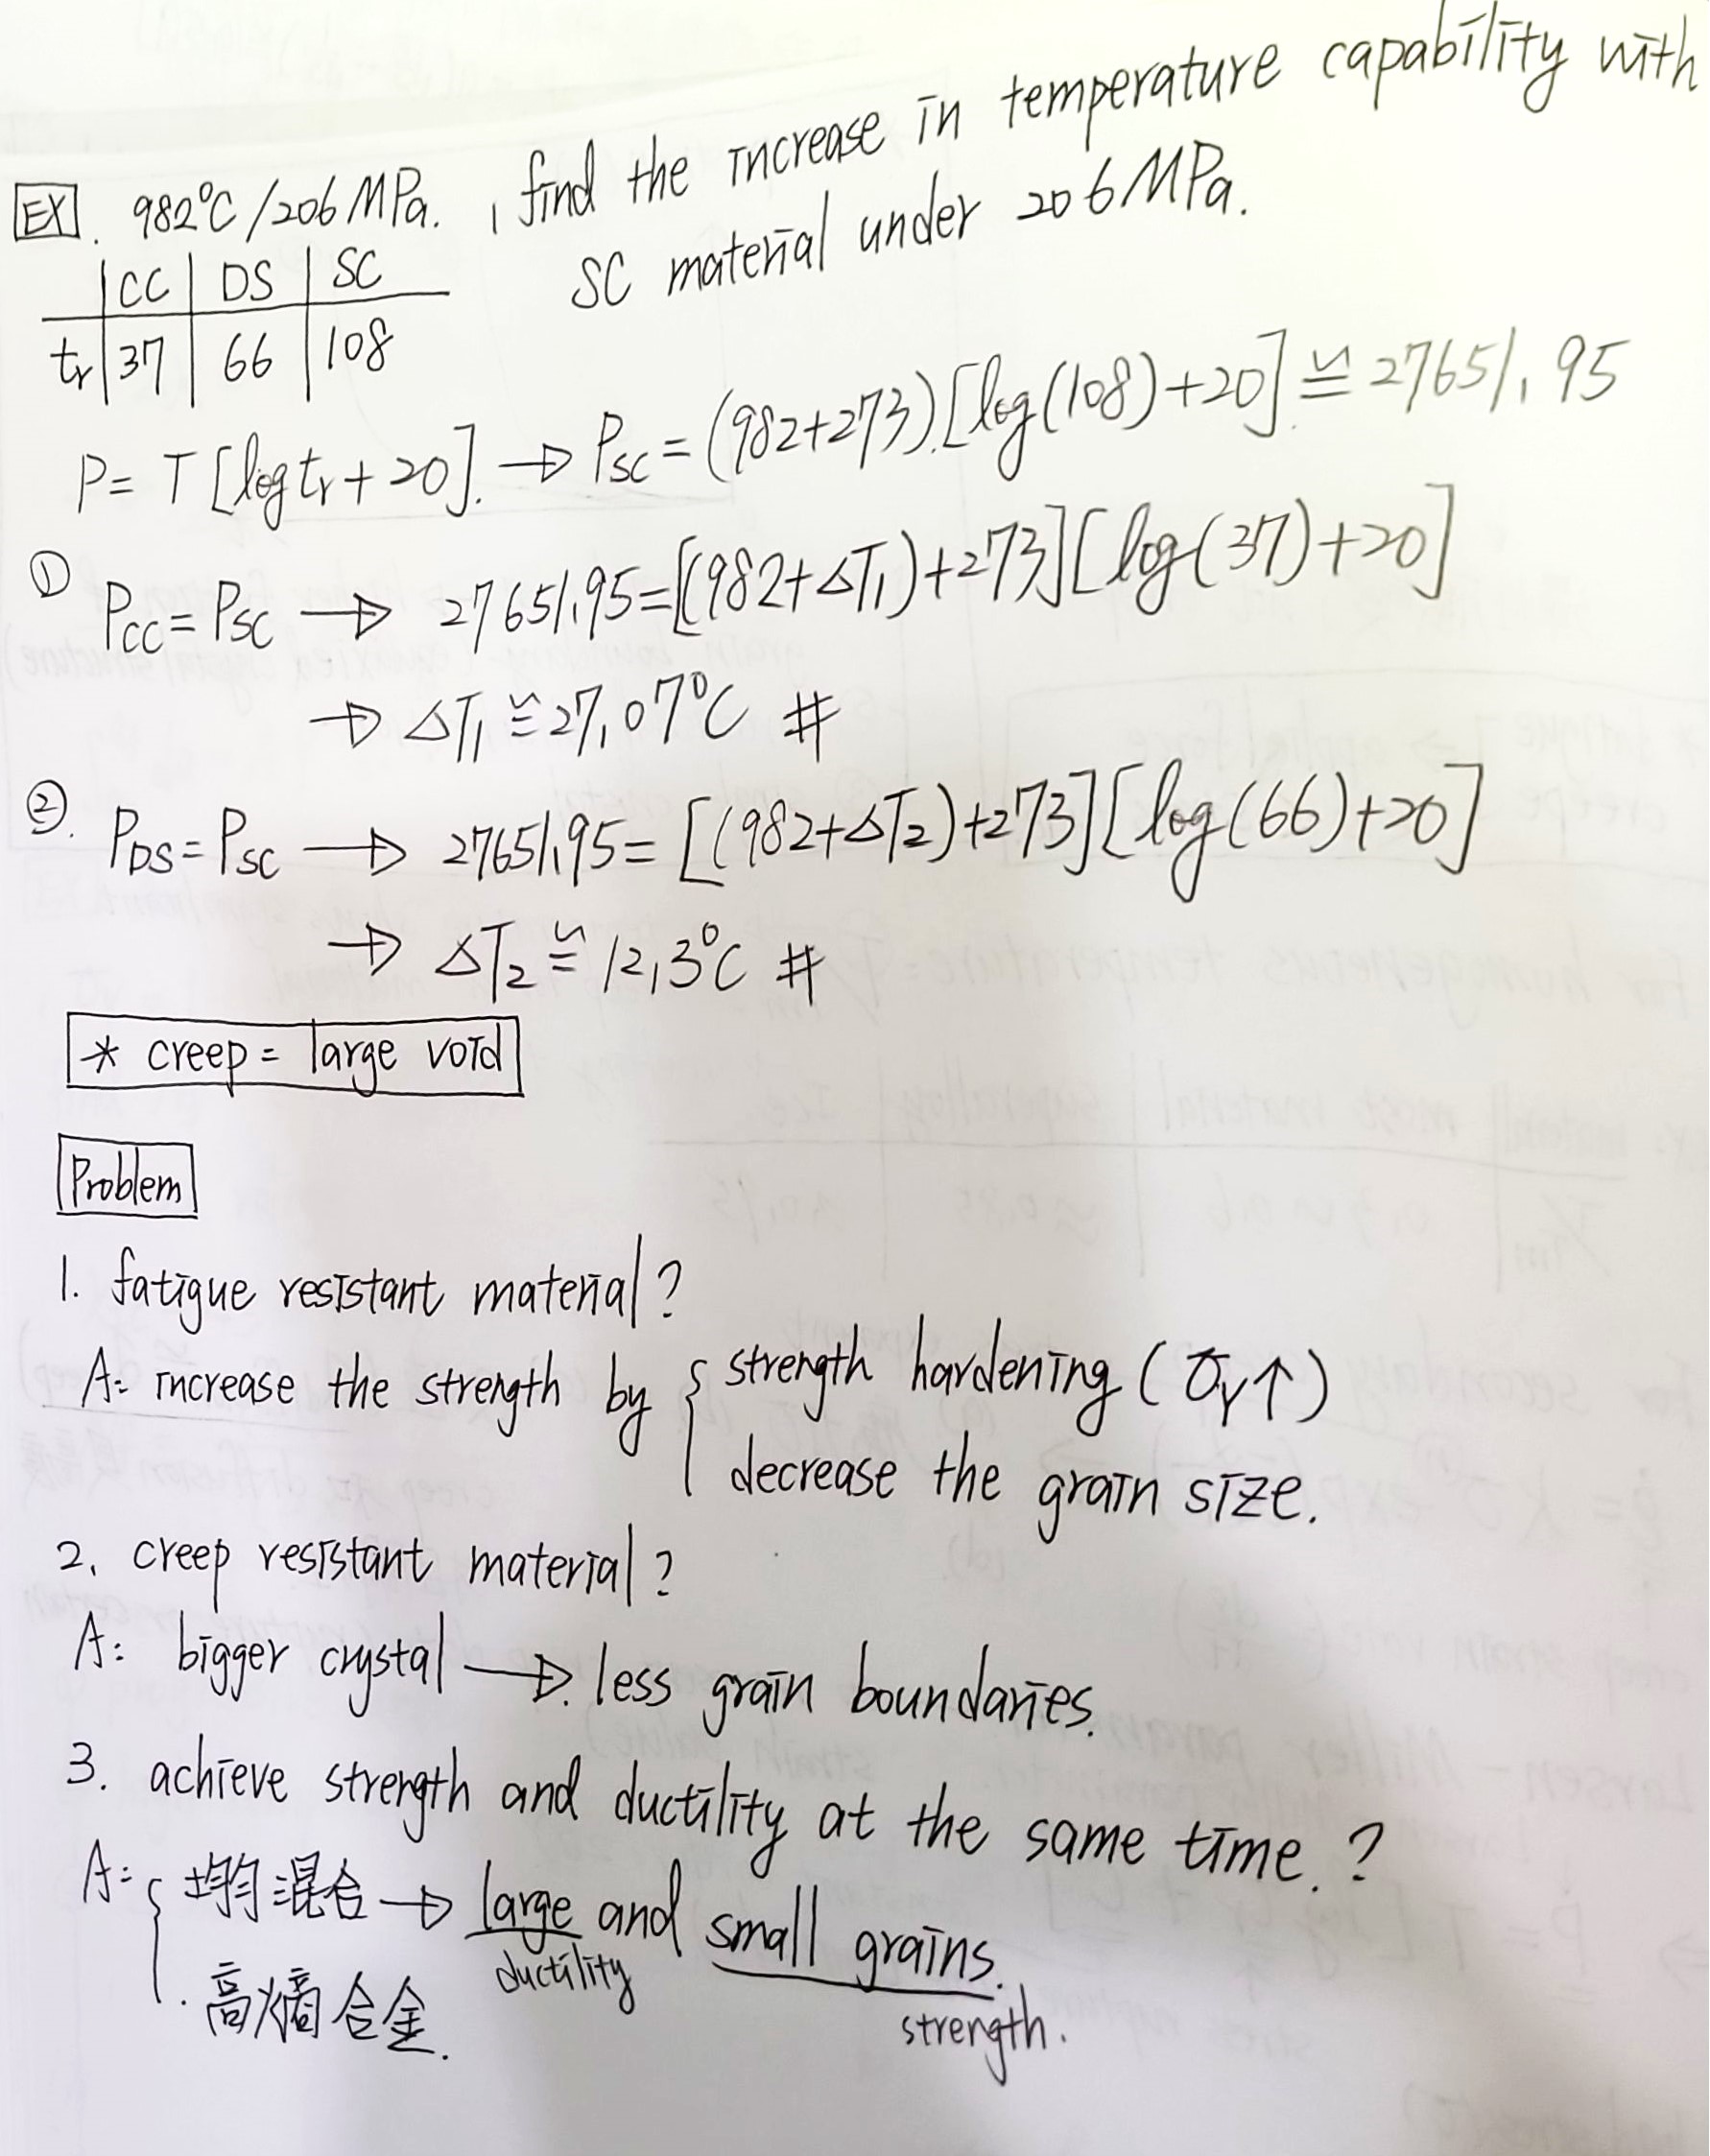 EX. 982°C/206 MPa. , find the increase in temperature capability with
SC material under 206 MPa.
CC DS SC
tr 37 66 108
P = T [log tr + 20]. → Psc = (982+273).[log(108)+20] ≅ 27651.95
① Pcc = Psc → 27651.95 = [(982+ΔT₁)+273][log(37)+20]
→ ΔT₁ ≅ 27.07°C #
②. PDS = Psc → 27651.95 = [(982+ΔT₂)+273][log(66)+20]
→ ΔT₂ ≅ 12.3°C #
* creep = large void
Problem
1. fatigue resistant material?
A: increase the strength by { strength hardening (σY↑)
decrease the grain size.
2. creep resistant material?
A: bigger crystal → less grain boundaries.
3. achieve strength and ductility at the same time.?
A: { 均勻混合 → large and small grains.
ductility
strength.
高熵合金.